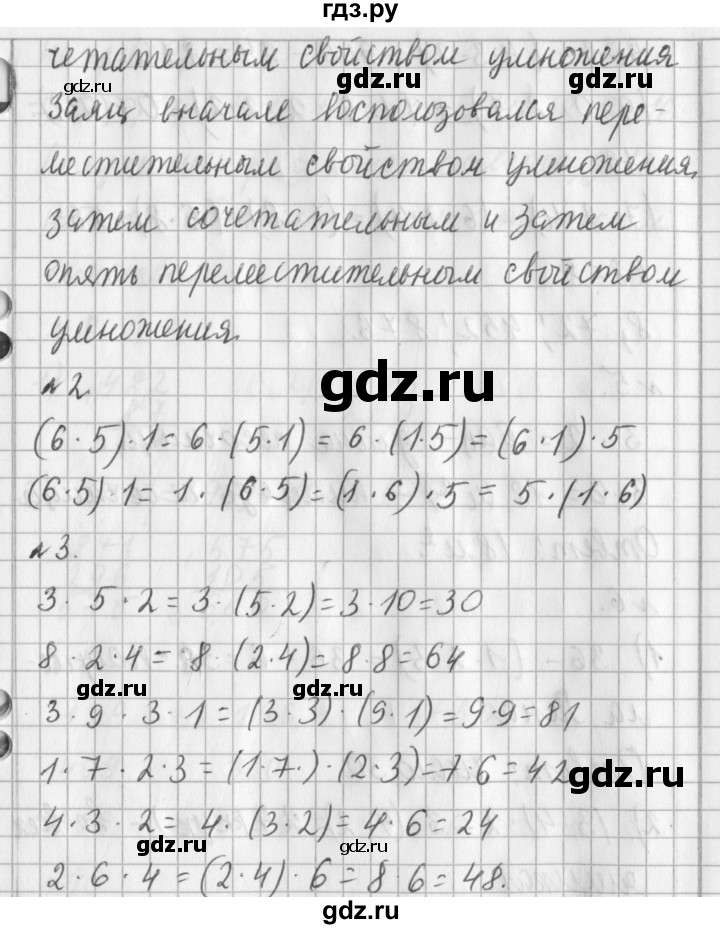 гдз.ру
четательным свойством умножения
Заяц вначале воспользовался пере-
местительным свойством умножения,
затем сочетательным и затем
опять переместительным свойством
умножения.
№2.
(6·5)·1=6·(5·1)=6·(1·5)=(6·1)·5
(6·5)·1=1·(6·5)=(1·6)·5=5·(1·6)
№3.
3·5·2=3·(5·2)=3·10=30
8·2·4=8·(2·4)=8·8=64
3·9·3·1=(3·3)·(9·1)=9·9=81
1·7·2·3=(1·7·)·(2·3)=7·6=42
4·3·2=4·(3·2)=4·6=24
2·6·4=(2·4)·6=8·6=48.
gdz.ru